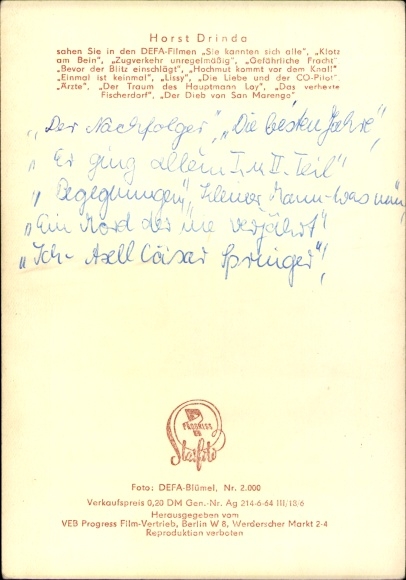 Horst Drinda
sahen Sie in den DEFA-Filmen „Sie kannten sich alle", „Klotz
am Bein", „Zugverkehr unregelmäßig", „Gefährliche Fracht"
„Bevor der Blitz einschlägt", „Hochmut kommt vor dem Knall"
„Einmal ist keinmal", „Lissy", „Die Liebe und der CO-Pilot".
„Ärzte", „Der Traum des Hauptmann Loy", „Das verhexte
Fischerdorf", „Der Dieb von San Marengo"
„Der Nachfolger", „Die besten Jahre",
„Er ging allein I. u II. Teil"
„Begegnungen", „Kleiner Mann - was nun"
„Ein Mord der nie verjährt"
„Ich - Axell Cäsar Springer",
PROGRESS
Starfoto
Foto: DEFA-Blümel, Nr. 2.000
Verkaufspreis 0,20 DM Gen.-Nr. Ag 214-6-64 III/18/6
Herausgegeben vom
VEB Progress Film-Vertrieb, Berlin W 8, Werderscher Markt 2-4
Reproduktion verboten